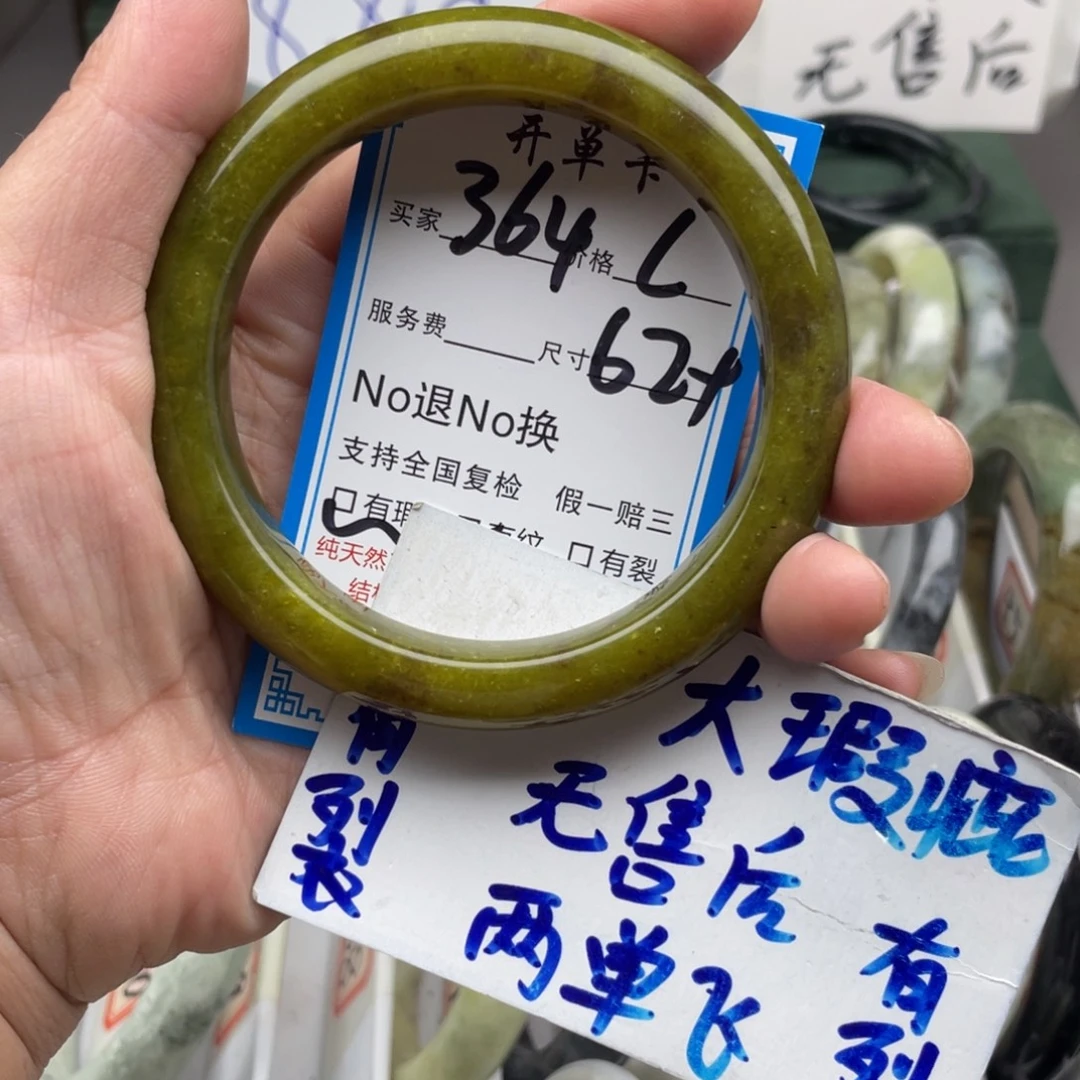 无售后
开单卡
买家 364 价格 L
服务费 尺寸 62+
No退No换
支持全国复检 假一赔三
口有瑕 口有裂
纯天然
结
大瑕疵
无售后
两单飞
有裂
有裂